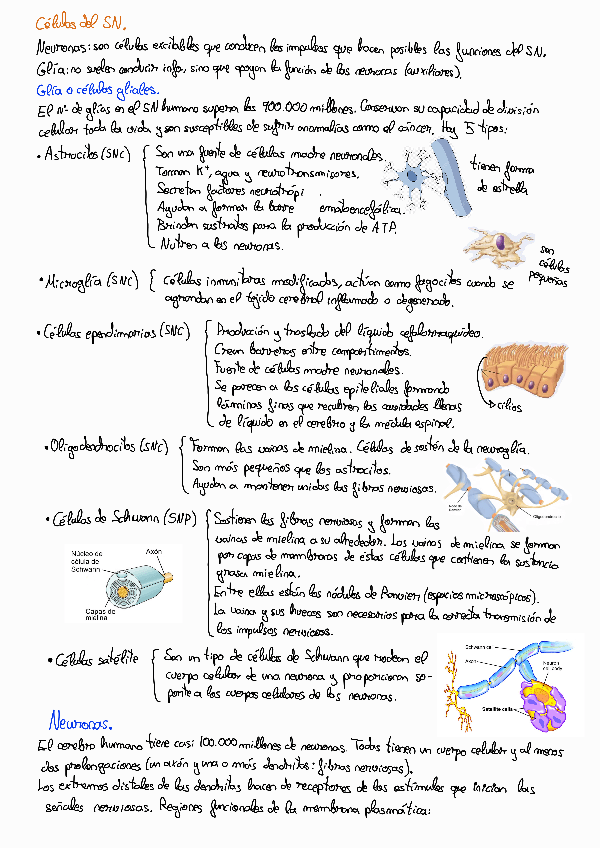 Células del SN.
Neuronas: son células excitables que conducen los impulsos que hacen posibles las funciones del SN.
Glía: no suelen conducir info, sino que apoyan la función de las neuronas (auxiliares).
Glía o células gliales.
El Nº de glías en el SN humano supera los 900.000 millones. Conservan su capacidad de división
celular toda la vida y son susceptibles de sufrir anomalías como el cáncer. Hay 5 tipos:
• Astrocitos (SNC)
Son una fuente de células madre neuronales.
Toman K⁺, agua y neurotransmisores.
Secretan factores neurotrópi .
Ayudan a formar la barre ematoencefálica.
Brindan sustratos para la producción de ATP.
Nutren a las neuronas.
tienen forma
de estrella
• Microglía (SNC)
Células inmunitarias modificadas, actúan como fagocitos cuando se
agrandan en el tejido cerebral inflamado o degenerado.
son
células
pequeñas
• Células ependimarias (SNC)
Producción y traslado del líquido cefalorraquídeo.
Crean barreras entre compartimentos.
Fuente de células madre neuronales.
Se parecen a las células epiteliales formando
láminas finas que recubren las cavidades llenas
de líquido en el cerebro y la médula espinal.
cilios
• Oligodendrocitos (SNC)
Forman las vainas de mielina. Células de sostén de la neuroglía.
Son más pequeños que los astrocitos.
Ayudan a mantener unidas las fibras nerviosas.
• Células de Schwann (SNP)
Sostienen las fibras nerviosas y forman las
vainas de mielina a su alrededor. Las vainas de mielina se forman
por capas de membranas de estas células que contienen la sustancia
grasa mielina.
Entre ellas están los nódulos de Ranvier (espacios microscópicos).
La vaina y sus huecos son necesarios para la correcta transmisión de
los impulsos nerviosos.
Núcleo de
célula de
Schwann
Axón
Capas de
mielina
• Células satélite
Son un tipo de células de Schwann que rodean el
cuerpo celular de una neurona y proporcionan so-
porte a los cuerpos celulares de las neuronas.
Schwann cell
Axon
Neuron
cell body
Satellite cells
Neuronas.
El cerebro humano tiene casi 100.000 millones de neuronas. Todas tienen un cuerpo celular y al menos
dos prolongaciones (un axón y una o más dendritas: fibras nerviosas).
Los extremos distales de las dendritas hacen de receptores de los estímulos que inician las
señales nerviosas. Regiones funcionales de la membrana plasmática: